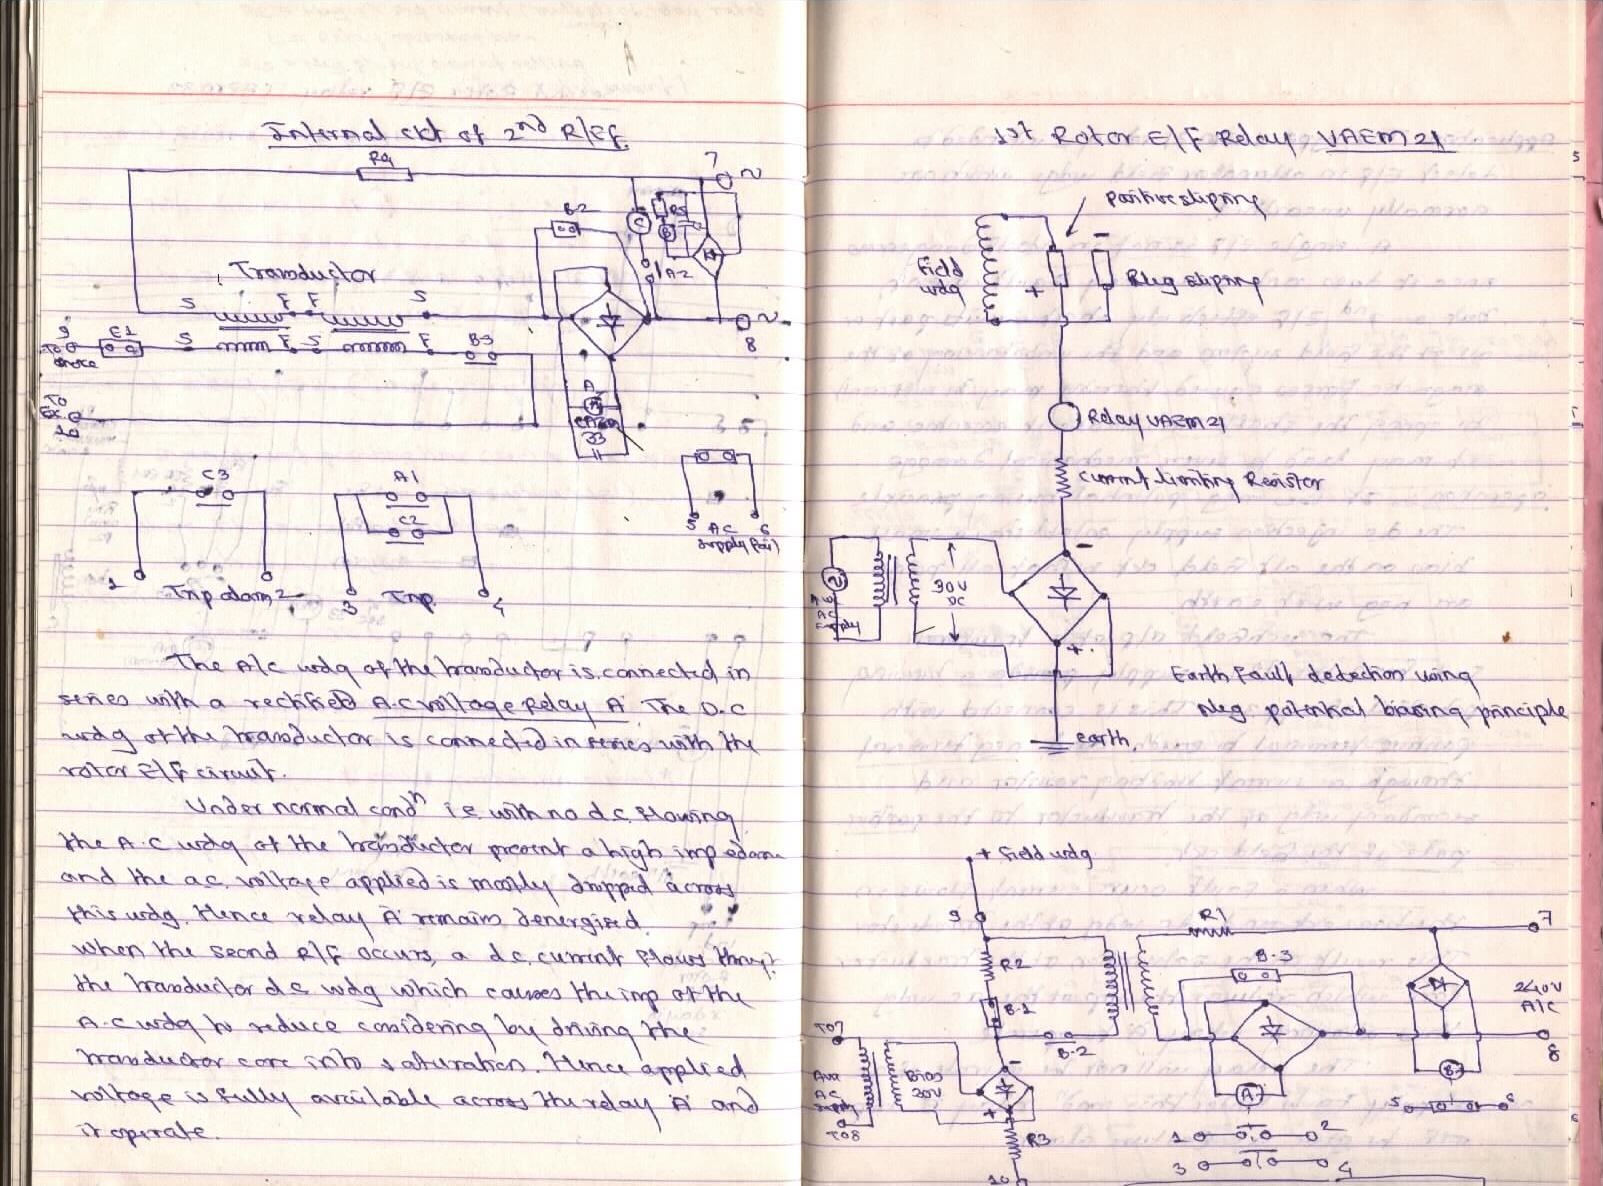 Internal ckt of 2nd R/Ef.
R4
7
~
B-2
C
R5
B
A2
Transductor
S F F S
9
C1
S F S F
B3
~
8
To
To
Ex.
10
A
33
C3
1
Trip alarm 2
A1
C2
3 Trip 4
5 AC 6
supply fail
The A/c wdg of the transductor is connected in
series with a rectified A.C voltage Relay A. The D.C
wdg of the transductor is connected in series with the
rotor E/F circuit.
Under normal condn i.e. with no d.c. flowing
the A.C wdg of the transductor present a high impedance
and the a.c. voltage applied is mostly dropped across
this wdg. Hence relay A remain denergised.
When the second R/F occurs, a d.c. current flows through
the transductor d.c wdg which causes the imp of the
A.C wdg to reduce considering by driving the
transductor core into saturation. Hence applied
voltage is fully available across the relay A and
it operate.
1st Rotor E/F Relay VAEM 21
Positive slipring
Field
wdg
+
-
Neg slipring
Relay VAEM 21
Current limiting Resistor
-
30V
DC
AC
supply
+
Earth Fault detection using
Neg potential biasing principle
earth.
+ Field wdg
9
R1
7
R2
B-3
B-1
B-2
240V
A/C
8
To 7
Aux
AC
supply
To 8
Bias
30V
-
+
A
B
5 6
R3
1 2
3 4
10